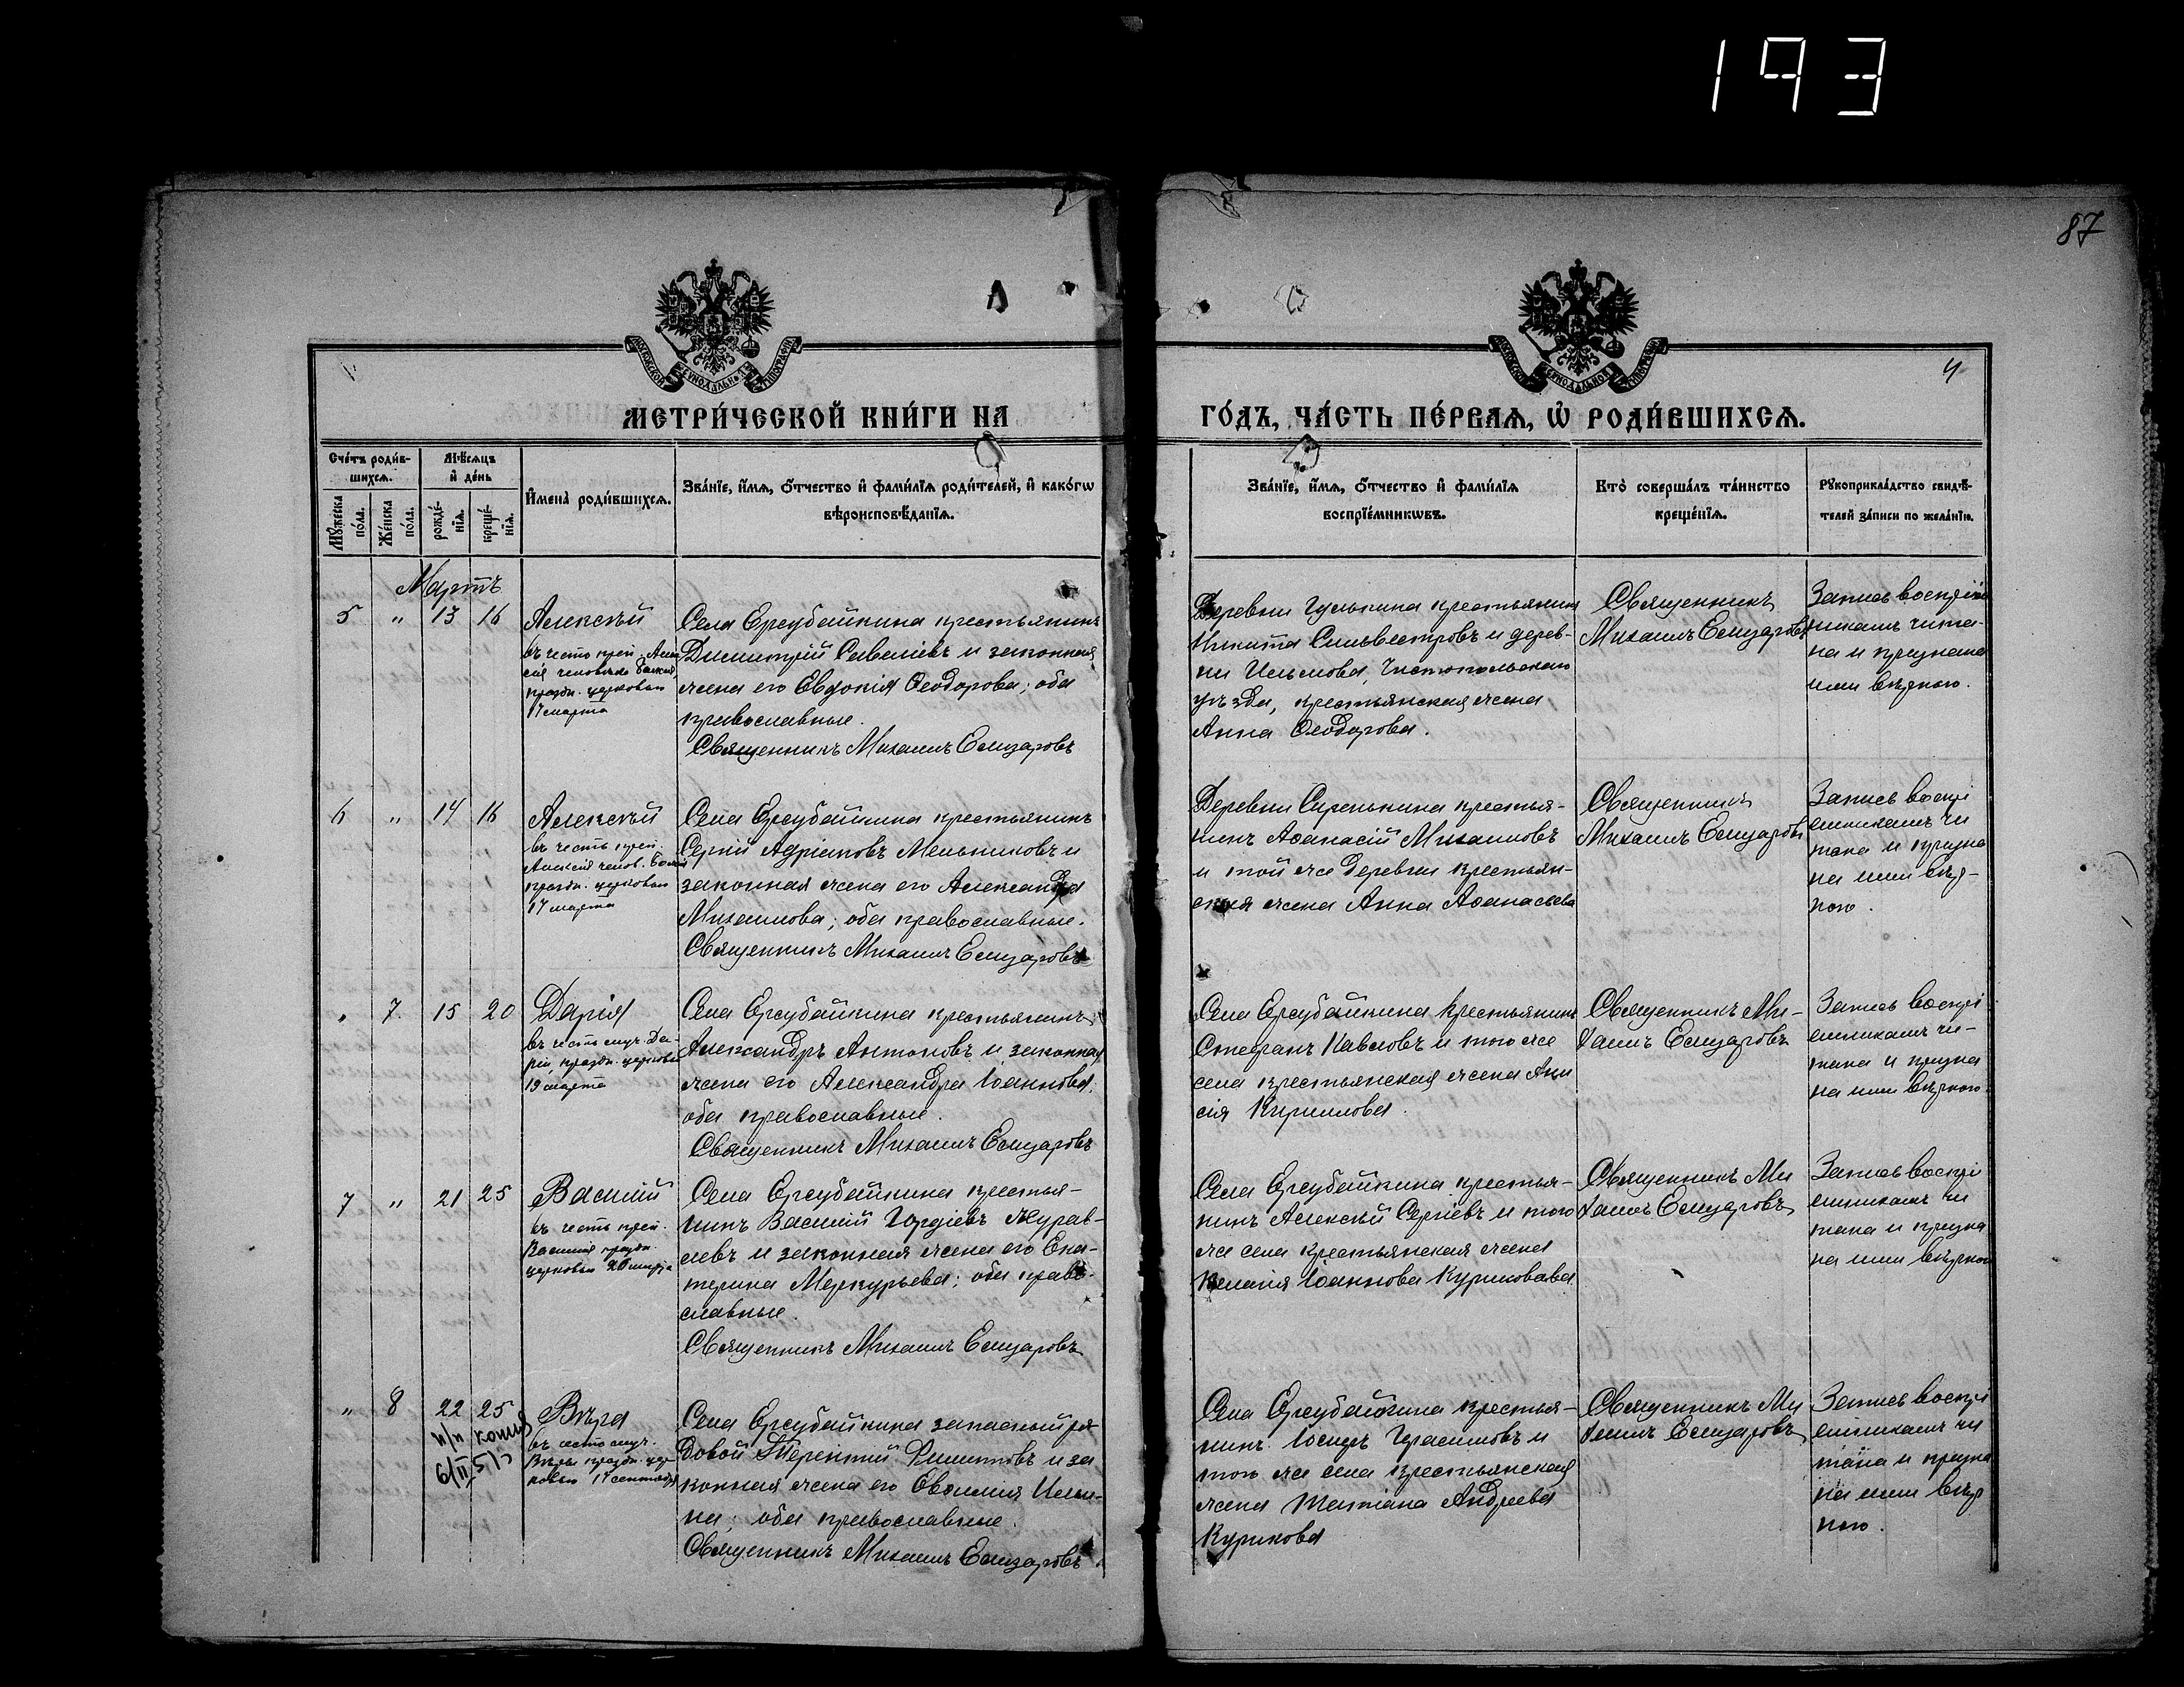 193
87
4
МЕТРИ́ЧЕСКОЙ КНИ́ГИ НА ГО́ДЪ, ЧА́СТЬ ПЕ́РВАѦ, Ѡ҆ РОДИ́ВШИХСѦ.
Сче́тъ роди́вшихсѧ.
Мꙋ́жеска по́ла.
Же́нска по́ла.
Мѣ́сѧцъ и҆ де́нь
рожде́нїѧ.
креще́нїѧ.
И҆мена̀ роди́вшихсѧ.
Зва́нїе, и҆́мѧ, ѻ҆́тчество и҆ фами́лїѧ роди́телей, и҆ како́гѡ
вѣроисповѣ́данїѧ.
Зва́нїе, и҆́мѧ, ѻ҆́тчество и҆ фами́лїѧ
воспрїе́мникѡвъ.
Кто̀ соверша́лъ та́инство
креще́нїѧ.
Рꙋкоприкла́дство свидѣ́телей за́писи по жела́нїю.
Мартъ
5 " 13 16
Алексѣй
въ честь преп. Алек
сія человѣка Божія,
праздн. церковью
17 марта
Села Ерсубайкина крестьянинъ
Димитрій Савеліевъ и законная
жена его Евдокія Ѳеодорова; оба
православные.
Священникъ Михаилъ Елизаровъ
Деревни Гулькина крестьянинъ
Никита Сильвестровъ и дерев-
ни Ильмова, Чистопольскаго
уѣзда, крестьянская жена
Анна Ѳеодорова.
Священникъ
Михаилъ Елизаровъ
Запись воспріем
никамъ чита-
на и признана
ими вѣрною.
6 " 14 16
Алексѣй
въ честь преп.
Алексія челов. Божія
праздн. церковью
17 марта
Села Ерсубайкина крестьянинъ
Сергій Адріановъ Мельниковъ и
законная жена его Александра
Михаилова; оба православные.
Священникъ Михаилъ Елизаровъ
Деревни Сиренькина крестья-
нинъ Аѳанасій Михаиловъ
и той же деревни крестьян-
ская жена Анна Аѳанасьева
Священникъ
Михаилъ Елизаровъ
Запись воспрі
емникамъ чи
тана и призна
на ими вѣр-
ною.
" 7. 15 20
Дарія
въ честь муч. Да-
ріи, праздн. церковью
19 марта
Села Ерсубайкина крестьянинъ
Александръ Антоновъ и законная
жена его Александра Іоаннова;
оба православные.
Священникъ Михаилъ Елизаровъ
Села Ерсубайкина крестьянинъ
Стефанъ Павловъ и того же
села крестьянская жена Ани
сія Кириллова.
Священникъ Ми-
хаилъ Елизаровъ
Запись воспрі
емникамъ чи-
тана и призна
на ими вѣрною.
7 " 21 25
Василій
въ честь преп.
Василія праздн.
церковью 26 марта
Села Ерсубайкина крестья-
нинъ Василій Гордіевъ Журав-
левъ и законная жена его Ека-
терина Меркурьева; оба право-
славные.
Священникъ Михаилъ Елизаровъ
Села Ерсубайкина крестья-
нинъ Алексѣй Сергіевъ и того
же села крестьянская жена
Іоаннова
Священникъ Ми
хаилъ Елизаровъ
Запись воспрі
емникамъ чи
тана и призна
на ими вѣрною
" 8 22 25
п/п копия
6/II
Вѣра
въ честь муч.
Вѣры праздн. цер-
ковью 17 сентября
Села Ерсубайкина запасный ря-
довой Терентій Филипповъ и за
конная жена его Евѳимія Ильи-
на; оба православные.
Священникъ Михаилъ Елизаровъ.
Села Ерсубайкина крестья-
нинъ Іосифъ Герасимовъ и
того же села крестьянская
жена Татіана Андреева
Курикова
Священникъ Ми
хаилъ Елизаровъ
Запись воспрі
емникамъ чи
тана и призна
на ими вѣр
ною.